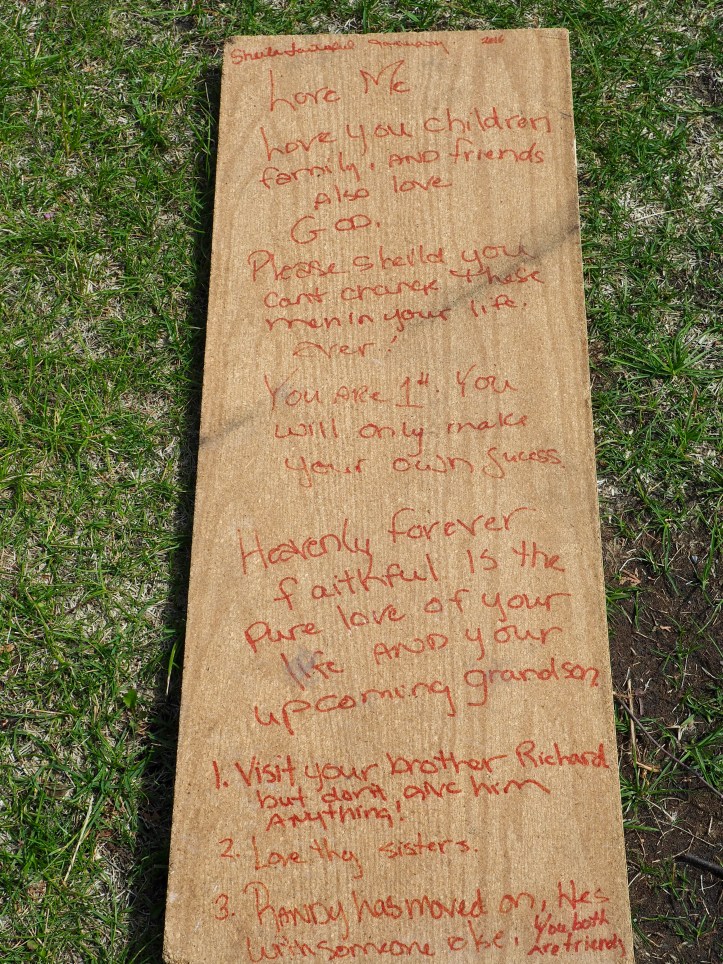 2016
Love Me
Love you children
family, AND friends
Also love
GOD.
Please sheild you
cant these
men in your life.
ever!
You ARE 1st. You
will only make
your own sucess.
Heavenly forever
faithful is the
pure love of your
life AND your
upcoming grandson
1. Visit your brother Richard
but don't give him
Anything!
2. Love thy sisters.
3. RANDY has moved on, Hes
with someone else. You both
Are friends